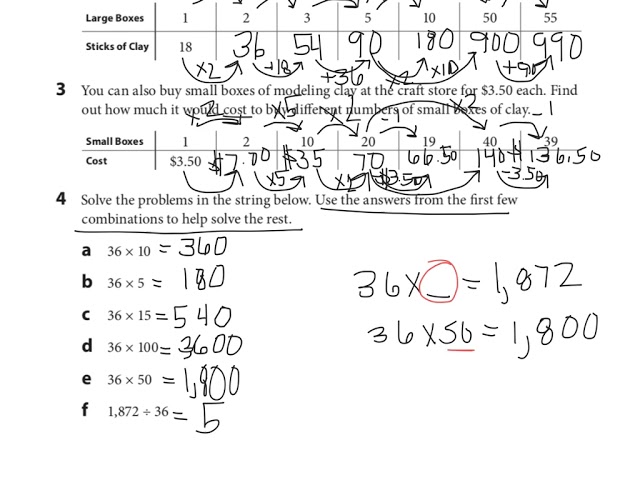 Large Boxes 1 2 3 5 10 50 55
Sticks of Clay 18 36 54 90 180 900 990
×2 +18 +36 ×2 ×10 +90
3 You can also buy small boxes of modeling clay at the craft store for $3.50 each. Find
out how much it would cost to buy different numbers of small boxes of clay.
×2 ×5 ×2 -1 ×2 -1
Small Boxes 1 2 10 20 19 40 39
Cost $3.50 $7.00 $35 70 66.50 140 $136.50
×5 ×2 -$3.50 -3.50
4 Solve the problems in the string below. Use the answers from the first few
combinations to help solve the rest.
a 36 × 10 = 360
b 36 × 5 = 180
c 36 × 15 = 540
d 36 × 100 = 3600
e 36 × 50 = 1,800
f 1,872 ÷ 36 = 5
36 × _ = 1,872
36 × 50 = 1,800